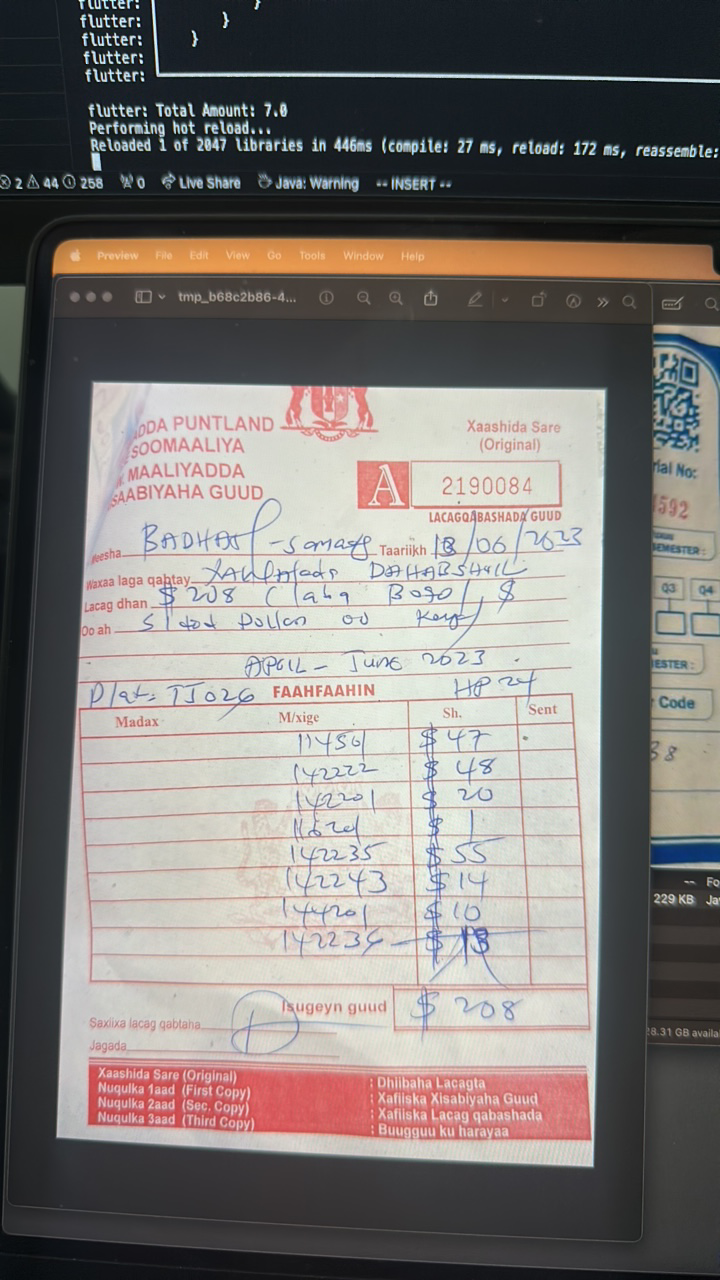 flutter:
flutter: }
flutter: }
flutter:
flutter:
flutter: Total Amount: 7.0
Performing hot reload...
Reloaded 1 of 2047 libraries in 446ms (compile: 27 ms, reload: 172 ms, reassemble:
2 44 258 0 Live Share Java: Warning -- INSERT --
Preview File Edit View Go Tools Window Help
tmp_b68c2b86-4...
DDA PUNTLAND
SOOMAALIYA
MAALIYADDA
SAABIYAHA GUUD
Xaashida Sare
(Original)
A 2190084
LACAGQABASHADA GUUD
Meesha Taariikh 18/06/2023
Waxaa laga qabtay DAHABSHIIL
Lacag dhan $ 208 (Laba Bogol, $
Oo ah
APRIL - June 2023
Plat: TJ026 FAAHFAAHIN HP 24
Madax M/xige Sh. Sent
$ 47
142222 $ 48
142201 $ 20
$ 1
142235 $ 55
142243 $ 14
144201 $ 10
142236 $ 13
Isugeyn guud $ 208
Saxiixa lacag qabtaha
Jagada
Xaashida Sare (Original) : Dhiibaha Lacagta
Nuqulka 1aad (First Copy) : Xafiiska Xisabiyaha Guud
Nuqulka 2aad (Sec. Copy) : Xafiiska Lacag qabashada
Nuqulka 3aad (Third Copy) : Buugguu ku harayaa
rial No:
1592
SEMESTER :
Q3 Q4
ESTER :
Code
38
-- Fo
229 KB Ja
28.31 GB availa